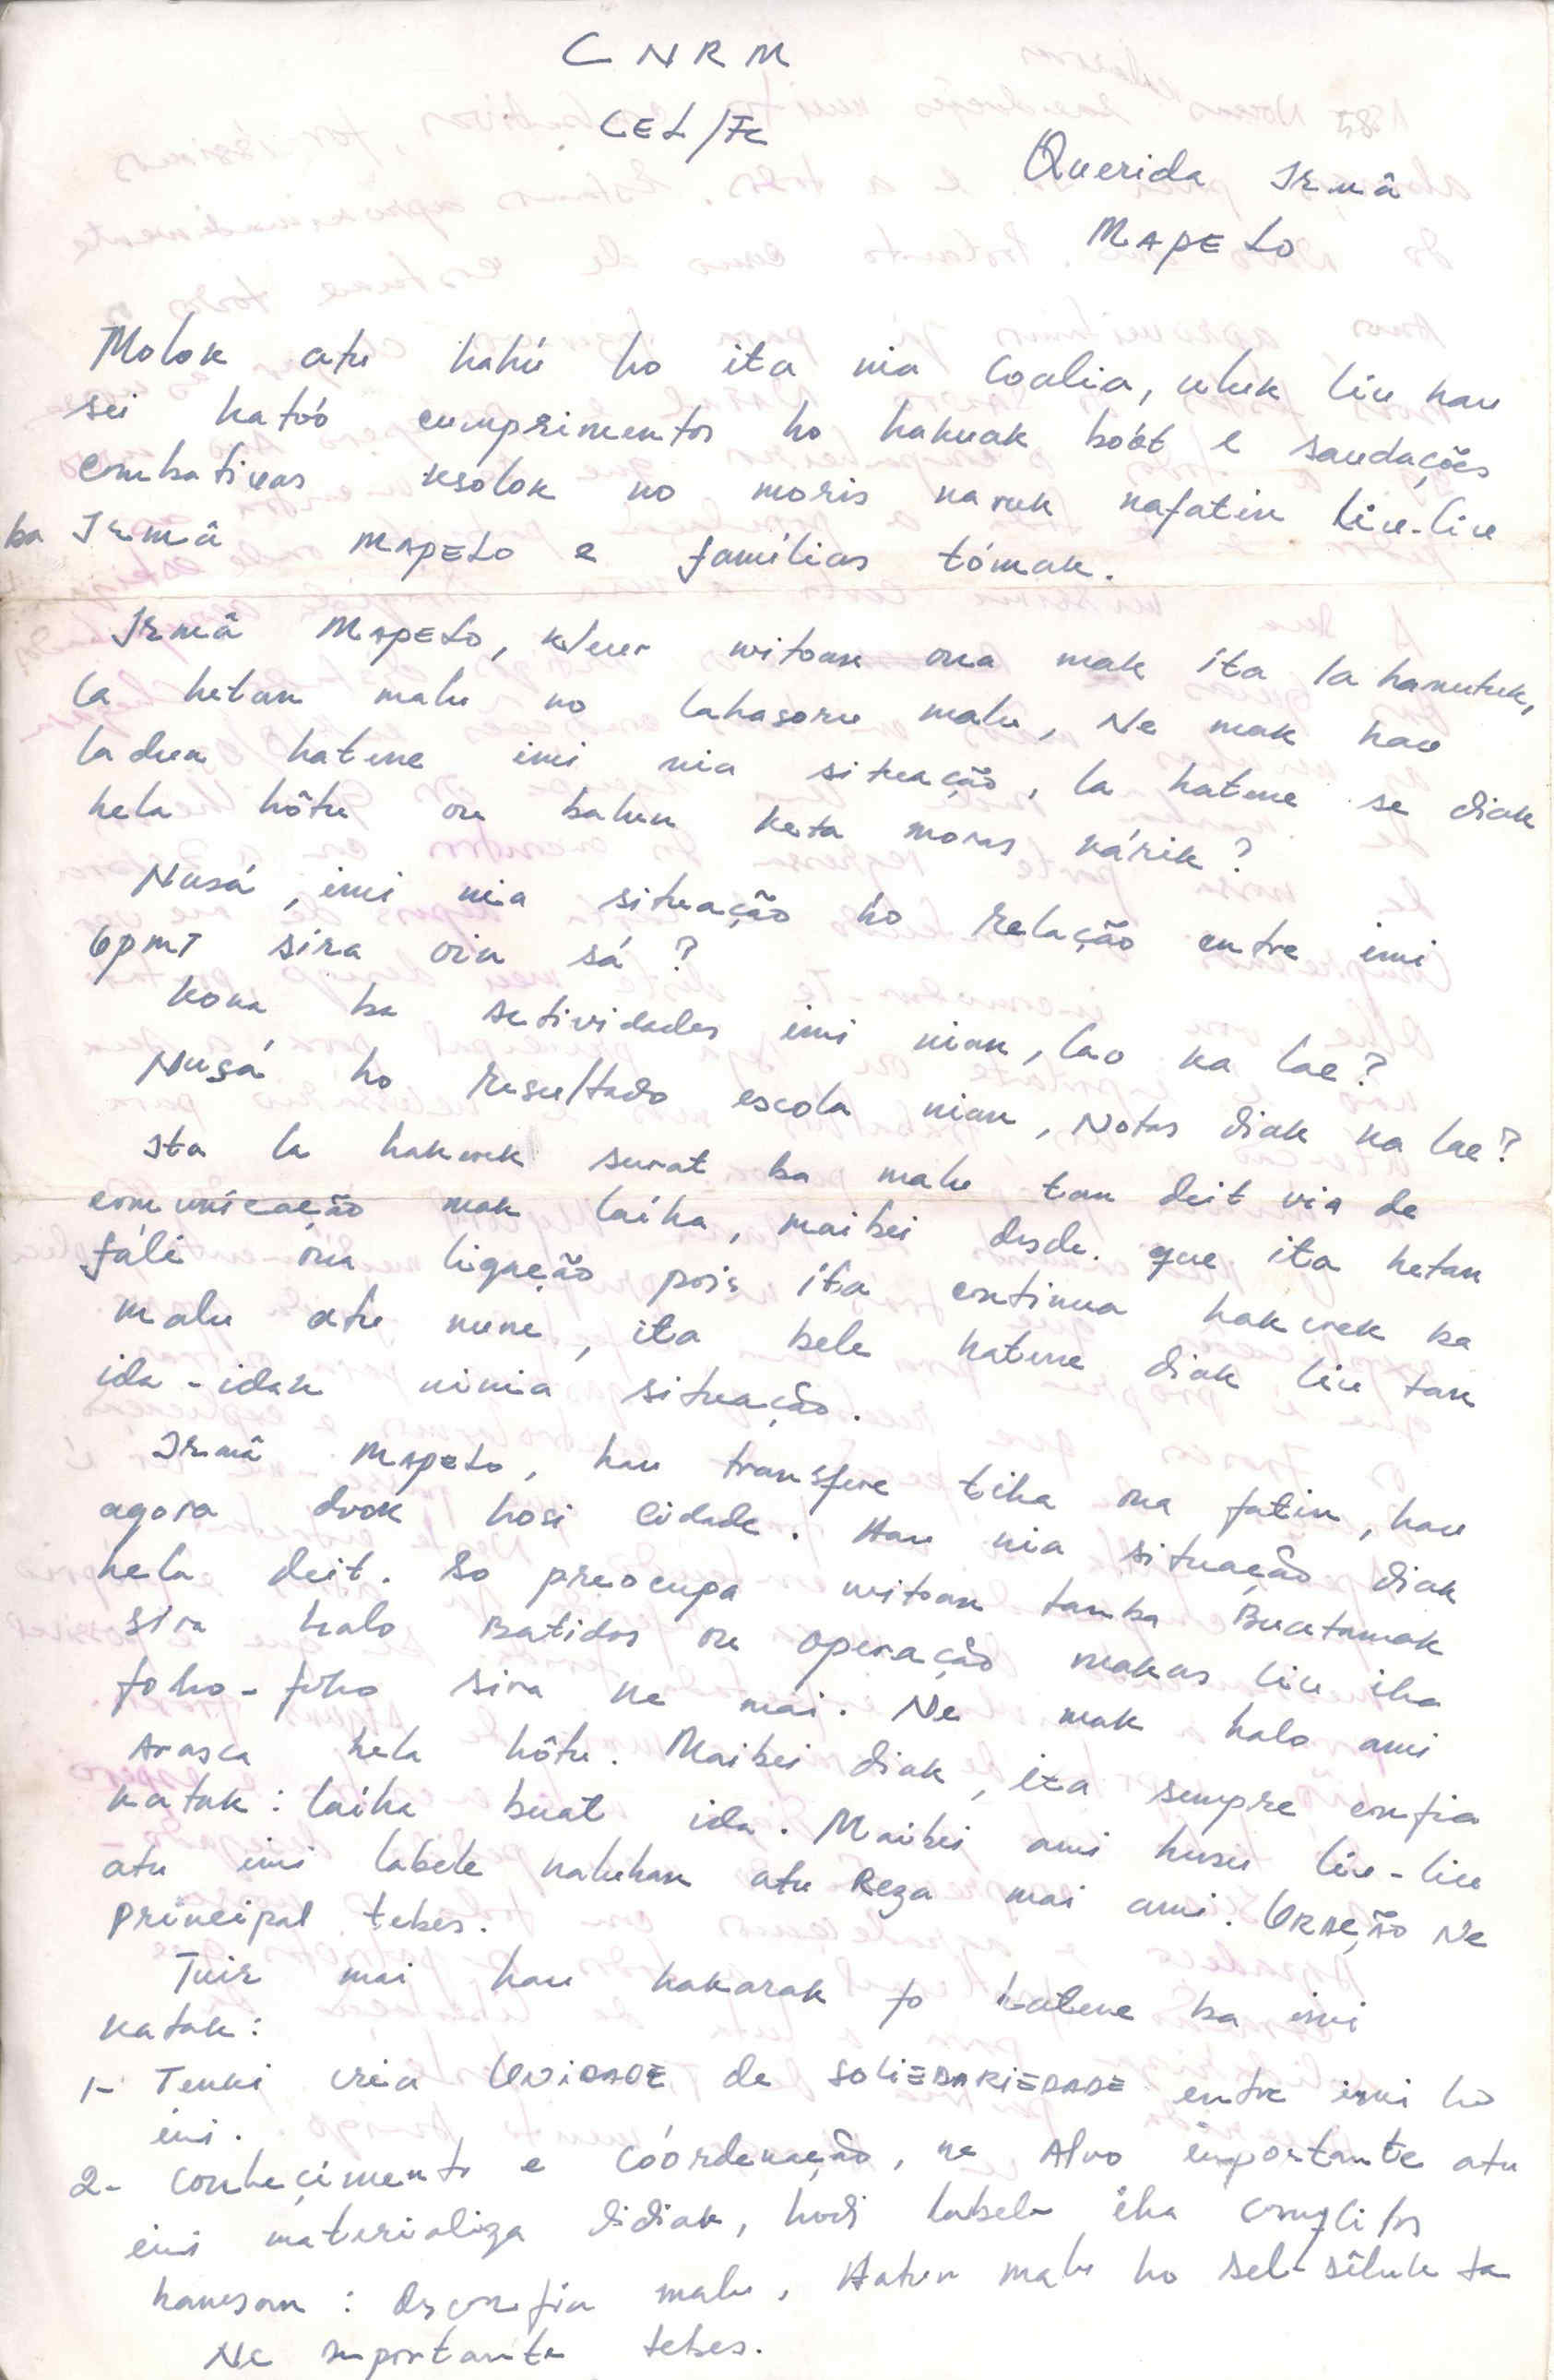 CNRM
CEL/FC
Querida Irmã
MAPELO
Molok atu hahú ho ita nia coalia, uluk liu hau
sei hatóó cumprimentos ho hakuak boót e saudações
combativas ksolok no moris naruk nafatin liu-liu
ba Irmã MAPELO e famílias tómak.
Irmã MAPELO, kleur uitoan ona mak ita la hamutuk,
la hetan malu no lahasoru malu, Ne mak hau
ladun hatene imi nia situação, la hatene se diak
hela hôtu ou balun keta moras kárik?
Nusá, imi nia situação ho relação entre imi
OPMT sira oin sá?
Kona ba actividades imi nian, lao ka lae?
Nusá ho resultado escola nian, Notas diak ka lae?
Ita la hakerek surat ba malu tan deit via de
comunicação mak laiha, maibei desde que ita hetan
fáli ona ligação pois ita continua hakerek ba
malu atu nune, ita bele hatene diak liu tan
ida-idak ninia situação.
Irmã MAPELO, hau transfere tiha ona fatin, hau
agora dook hosi cidade. Hau nia situação diak
hela deit. So preocupa uitoan tamba Bucutamak
sira halo Batidas ou operação makas liu iha
foho-foho sira ne mai. Ne mak halo ami
Arasca hela hôtu. Maibei diak, ita sempre confia
katak: laiha buat ida. Maibei ami husu liu-liu
atu imi labele haluhan atu Reza mai ami. ORAÇÃO Ne
principal tebes.
Tuir mai hau hakarak fo hatene ba imi
katak:
1- Tenki cria UNIDADE de SOLIEDARIEDADE entre imi ho
imi.
2- Conheçimento e Cóordenação, ne Alvo importante atu
imi materializa didiak, hodi labele iha conflitos
hanesan: desconfia malu, Hatun malu ho sel-séluk ta
Ne importante tebes.